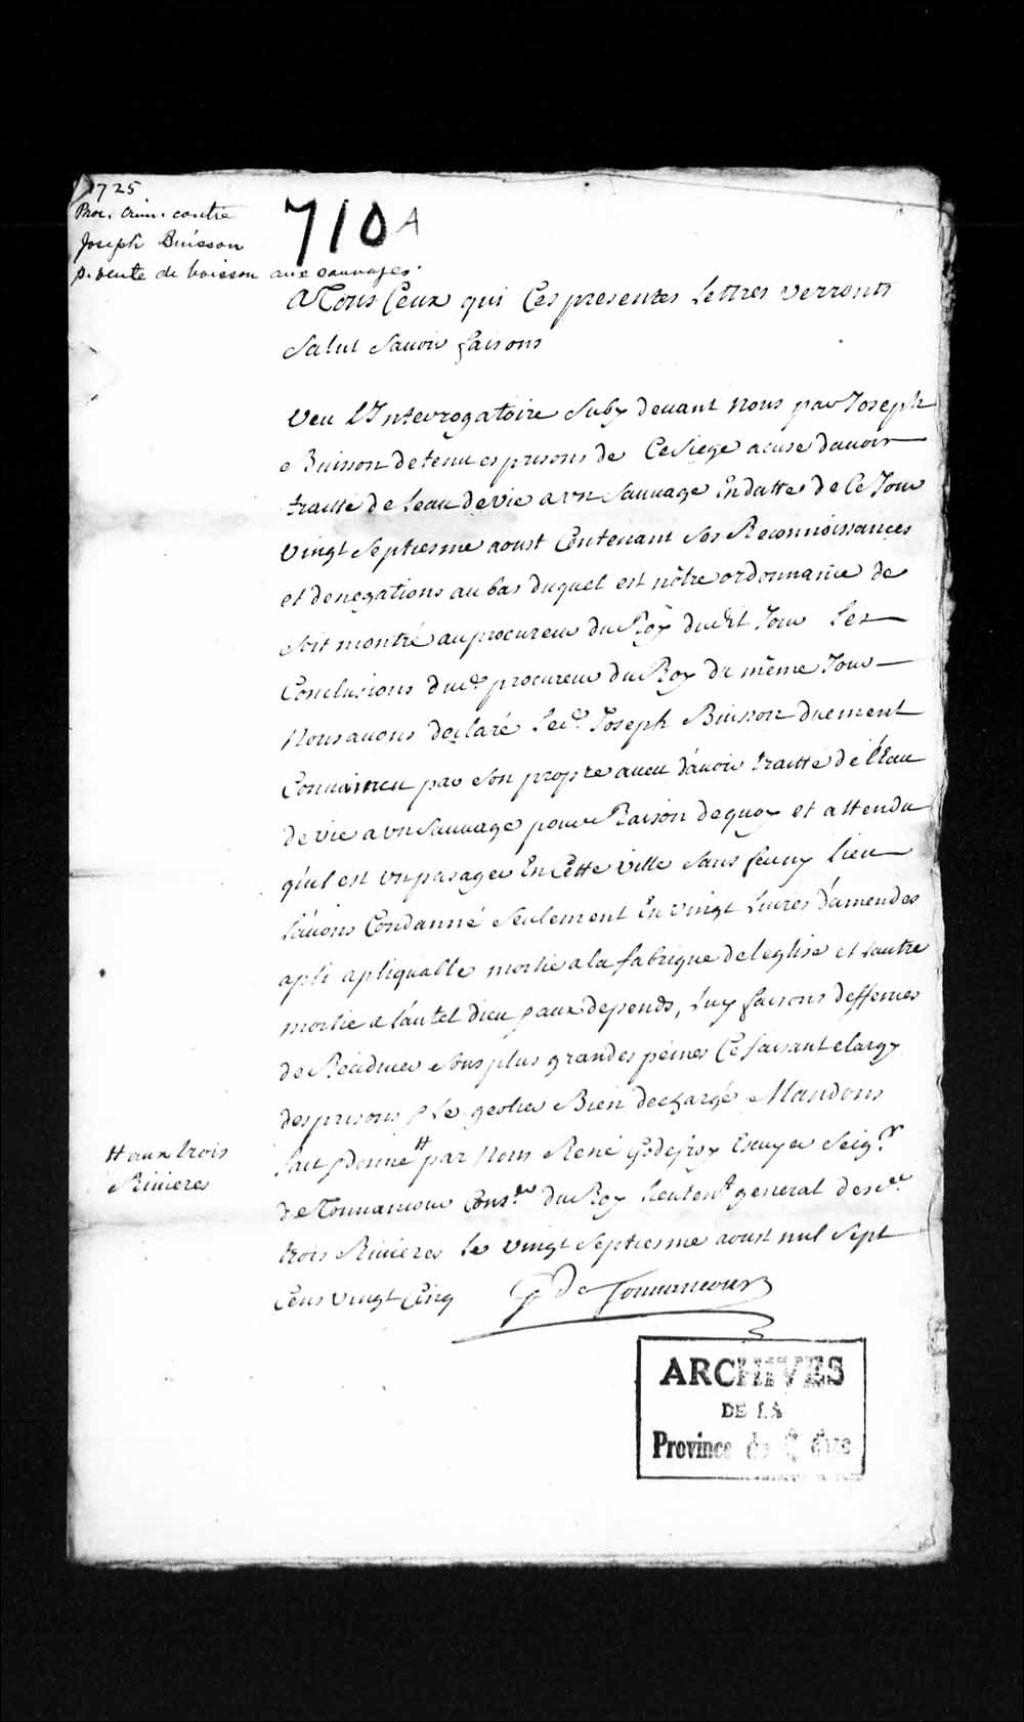 1725
Proc. Crim. contre
Joseph Buisson
p. vente de boisson aux sauvages.
710 A
A Tous Ceux qui Ces presentes Lettres verronts
Salut Savoir faisons
Veu L'Interrogatoire Suby devant Nous par Joseph
Buisson detenu es prisons de Ce Siege acuse davoir
traitté de leau de vie a un Sauvage En datte de Ce Jour
vingt Septiesme aoust Contenant Ses Reconnoissances
et denegations au bas duquel est nôtre ordonnance de
soit montré au procureur du Roy dudit Jour Les
Conclusions dud. procureur du Roy du même Jour
Nous avons declaré led. Joseph Buisson duement
Convaincu par son propre aveu d'avoir traitté de l'Eau
de vie a un Sauvage pour Raison dequoy et attendu
quil est un pasager En Cette ville Sans feu ny lieu
L'avons Condanné Seulement En vingt Livres d'amendes
apli apliquable moitie a la fabrique de leglise et lautre
moitie a l'autel dieu & aux depends, Luy faisons deffences
de Recidiver sous plus grandes peines Ce faisant elargy
des prisons & le geolier Bien dechargé Mandons
fait & donné # par Nous René Godefroy Escuyer Seigr
# aux trois
Rivieres
de Tonnancour Consr du Roy Lieutent general des
trois Rivieres le vingt Septiesme aoust mil Sept
Cens vingt Cinq G De Tonnancour
ARCHIVES
DE LA
Province de Québec